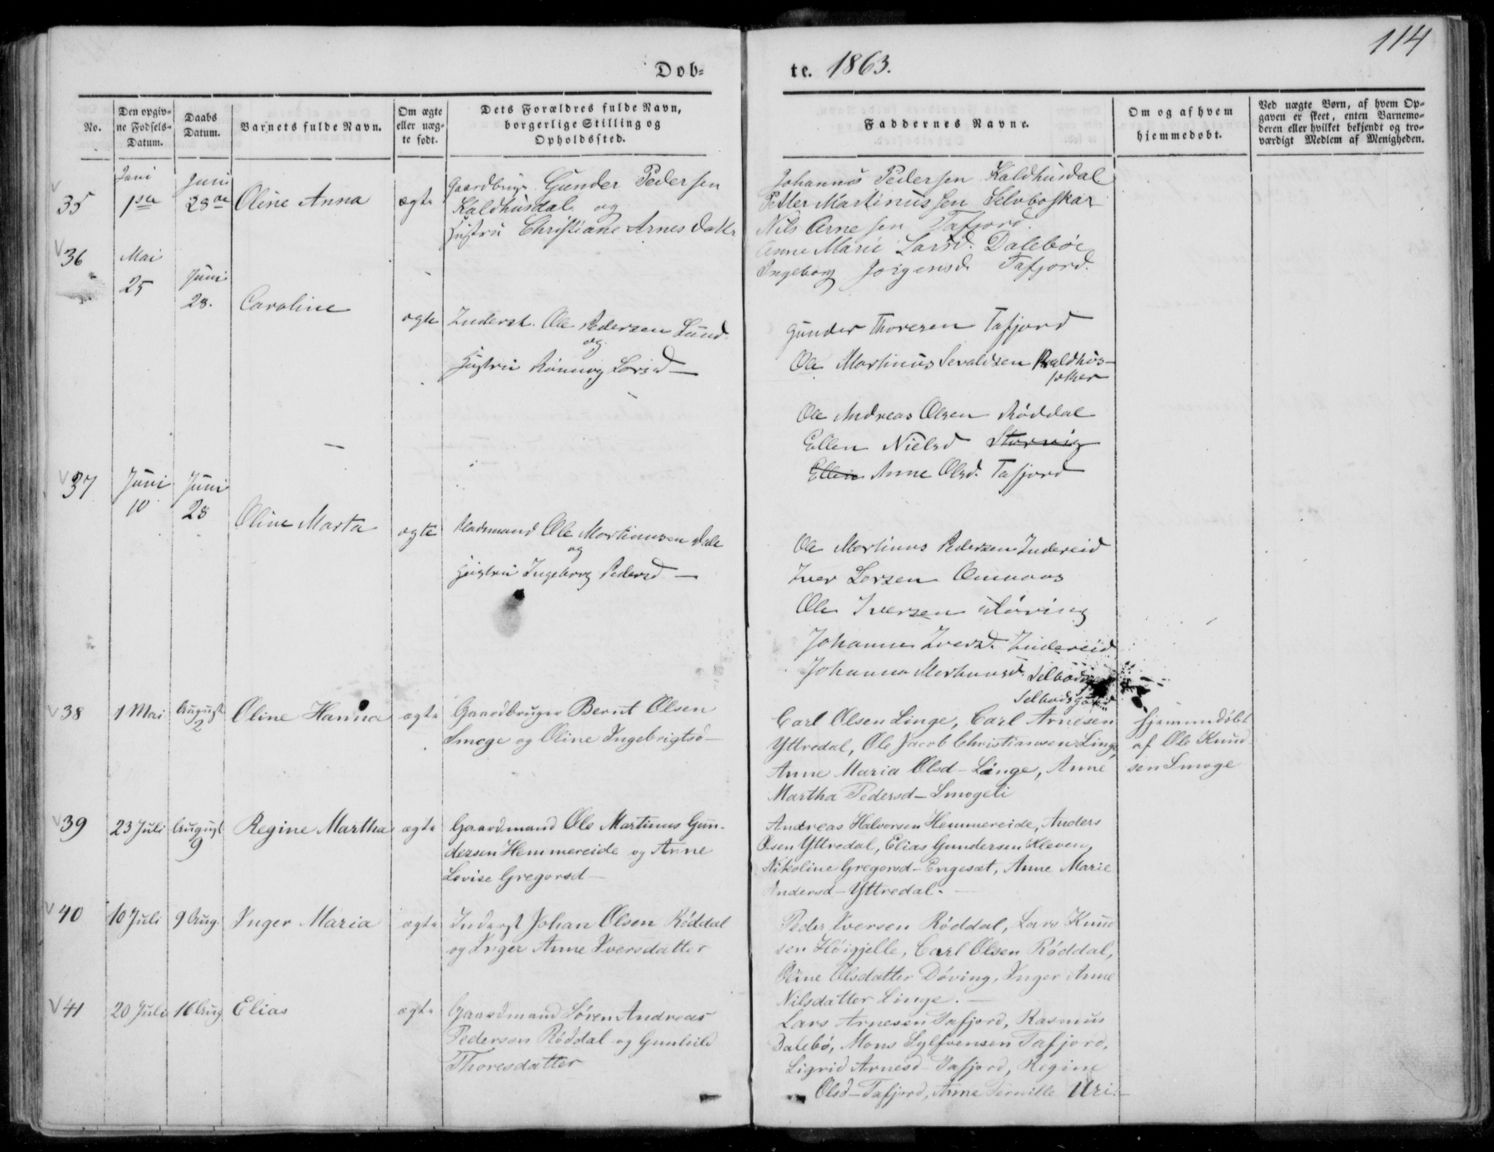 114
Døb- te. 1863.
No.
Den opgiv-
ne Fødsels-
Datum.
Daabs
Datum.
Barnets fulde Navn.
Om ægte
eller uæg-
te født.
Dets Forældres fulde Navn,
borgerlige Stilling og
Opholdssted.
Faddernes Navne.
Om og af hvem
hjemmedøbt.
Ved uægte Børn, af hvem Op-
gaven er skeet, enten Barnemo-
deren eller hvilket bekjendt og tro-
værdigt Medlem af Menigheden.
35
Juni
1ste
Juni
28de
Oline Anna
ægte
Gaardbrugr Gunder Pedersen
Kaldhusdal og
Hustru Christiane Arnesdatr
Johannes Pedersen Kaldhusdal
Petter Martinussen Selvboskar
Nils Arnesen Tafjord.
Anne Marie Larsd. Dalebøe
Ingeborg Jørgensd. Tafjord.
36
Mai
25
Juni
28.
Caroline
ægte
Inderst. Ole Pedersen Lund
og
Hustru Rønnug Larsd —
Gunder Thoresen Tafjord
Ole Martinus Sevaldsen Kaldhus-
Ole Andreas Olsen Røddal
Ellen Nielsd Størvig
Ellen Anne Olsd. Tafjord
37
Juni
10
Juni
28
Oline Marta
ægte
Ole Martinusen Dale
og
Hustru Ingeborg Pedersd —
Ole Martinus Pedersen Indereid
Iver Larsen Omnaas
Ole Iversen Døving
Johanne Iversd. Indereid
Johanna
38
1 Mai
August
2
Oline Hanna
ægte
Gaardbruger Bernt Olsen
Smoge og Oline Ingebrigtsd —
Carl Olsen Linge, Carl Arnesen
Yttredal, Ole Jacob Christiansen Linge,
Anne Maria Olsd — Linge, Anne
Martha Pedersd — Smogeli
Hjemmedøbt
af Ole Knud-
sen Smoge
39
23 Juli
August
9
Regine Martha
ægte
Gaardmand Ole Martinus Gun-
dersen Hemmereide og Anne
Lovise Gregorsd —
Andreas Halvorsen Hemmereide, Anders
Olsen Yttredal, Elias Gundersen Kleven,
Nikoline Gregorsd — Engeset, Anne Marie
Andersd — Yttredal. —
40
10 Juli
9 Aug.
Inger Maria
ægte
Inderst Johan Olsen Røddal
og Inger Anne Iversdatter
Peder Iversen Røddal, Lars Knud
sen Høigjelle, Carl Olsen Røddal,
Oline Olsdatter Døving, Inger Anne
Nilsdatter Linge. —
41
20 Juli
16 Aug
Elias
ægte
Gaardmand Søren Andreas
Pedersen Røddal og Gunhild
Thoresdatter
Lars Arnesen Tafjord, Rasmus
Dalebø, Mons Sylfvensen Tafjord,
Sigrid Arnesd — Tafjord, Regine
Olsd — Tafjord, Anne Pernille Uri. —